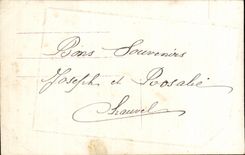 Bons Souvenirs
Joseph et Rosalie
Chauvel